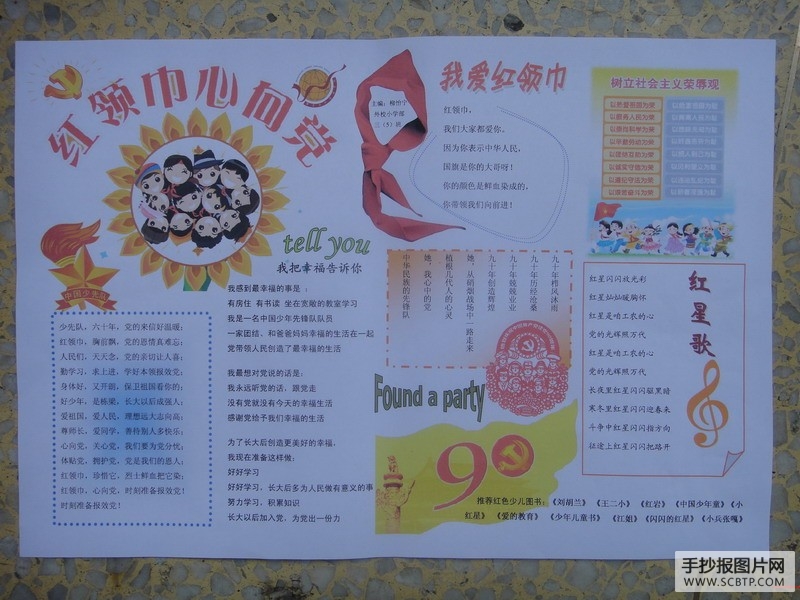 红领巾心向党
主编：
外校小学部
三（5）班
我爱红领巾
红领巾，
我们大家都爱你，
因为你表示中华人民，
国旗是你的大哥呀！
你的颜色是鲜血染成的，
你带领我们向前进！
树立社会主义荣辱观
以热爱祖国为荣
以服务人民为荣
以崇尚科学为荣
以辛勤劳动为荣
以团结互助为荣
以诚实守信为荣
以遵纪守法为荣
以艰苦奋斗为荣
中国少先队
少先队，六十年，党的来信好温暖；
红领巾，胸前飘，党的恩情真难忘；
人民们，天天念，党的亲切让人喜；
勤学习，求上进，学好本领报效党；
身体好，又开朗，保卫祖国看你的；
好少年，是栋梁，长大以后成强人；
爱祖国，爱人民，理想远大志向高；
尊师长，爱同学，善待别人多快乐；
心向党，关心党，我们要为党分忧；
体贴党，拥护党，党是我们的恩人；
红领巾，珍惜它，烈士鲜血把它染；
红领巾，心向党，时刻准备报效党！
时刻准备报效党！
tell you
我把幸福告诉你
我感到最幸福的事是：
有房住 有书读 坐在宽敞的教室学习
我是一名中国少年先锋队队员
一家团结、和爸爸妈妈幸福的生活在一起
党带领人民创造了最幸福的生活
我最想对党说的话是：
我永远听党的话，跟党走
没有党就没有今天的幸福生活
感谢党给予我们幸福的生活
为了长大后创造更美好的幸福，
我现在准备这样做：
好好学习
好好学习，长大后多为人民做有意义的事
努力学习，积累知识
长大以后加入党，为党出一份力
九十年栉风沐雨
九十年历经沧桑
九十年兢兢业业
九十年创造辉煌
她，从硝烟战场中一路走来
植根几代人的心灵
她，我心中的党
中华民族的先锋
Found a party
90
红星歌
红星闪闪放光彩
红星灿灿暖胸怀
红星是咱工农的心
党的光辉照万代
红星是咱工农的心
党的光辉照万代
长夜里红星闪闪驱黑暗
寒冬里红星闪闪迎春来
斗争中红星闪闪指方向
征途上红星闪闪把路开
推荐红色少儿图书：《刘胡兰》 《王二小》 《红岩》 《中国少年童》《小
红星》 《爱的教育》 《少年儿童书》 《江姐》《闪闪的红星》《小兵张嘎》
手抄报图片网
WWW.SCBTP.COM